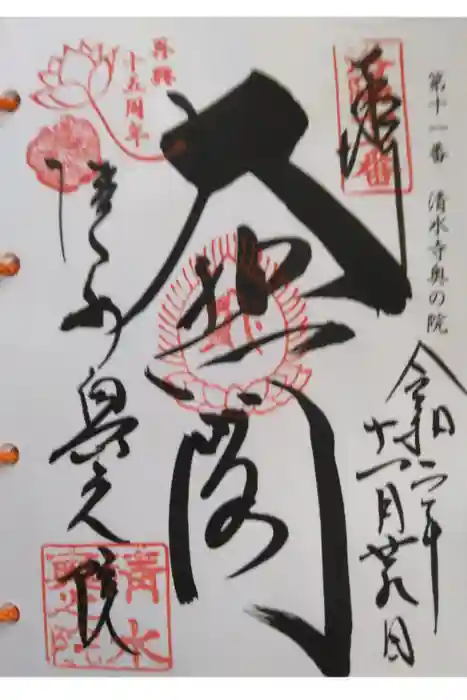 第十一番 清水寺奥の院
奉拝
令和二年
十一月廿九日
大悲閣
再興
十五周年
清水寺
奥之院
清水
奥之院